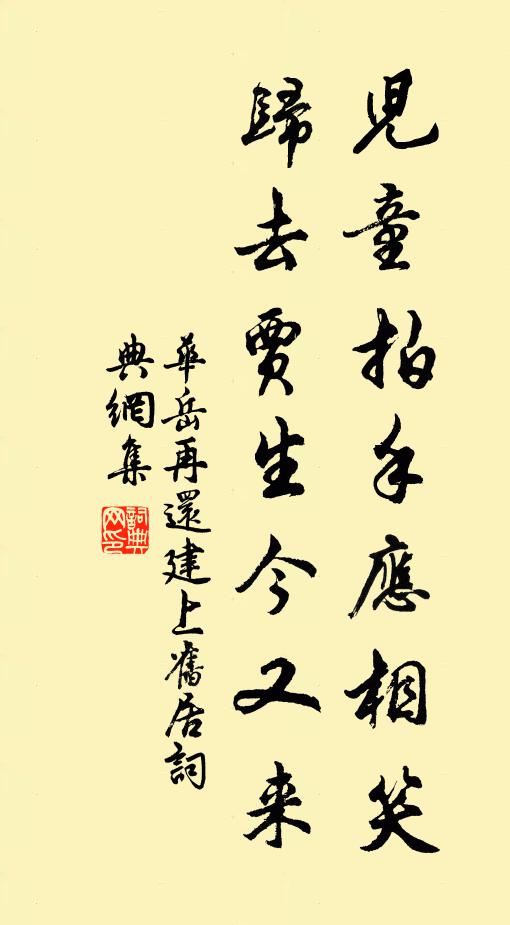 兒童拍手應相笑
歸去賈生今又来
華岳再還建上舊居詞
典網集
詞典網印